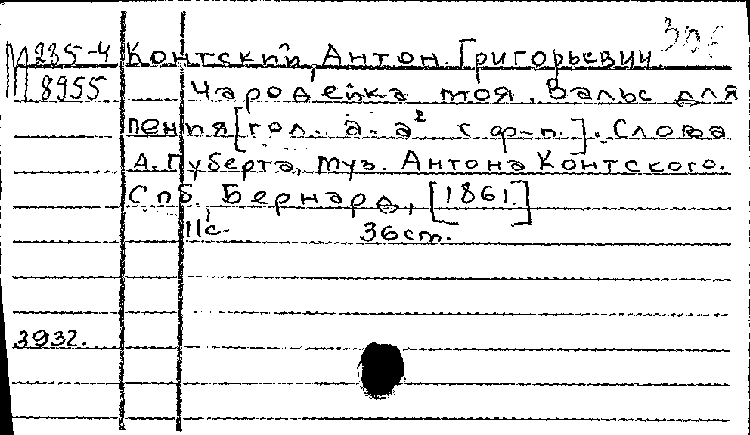 М 285-4 Контский, Антон Григорьевич
8955 Чародейка моя. Вальс для
пения [гол. a-a² с ф-п.]. Слова
А. Губерта, муз. Антона Контского.
Спб. Бернард, [1861]
11с. 36см.
3932.